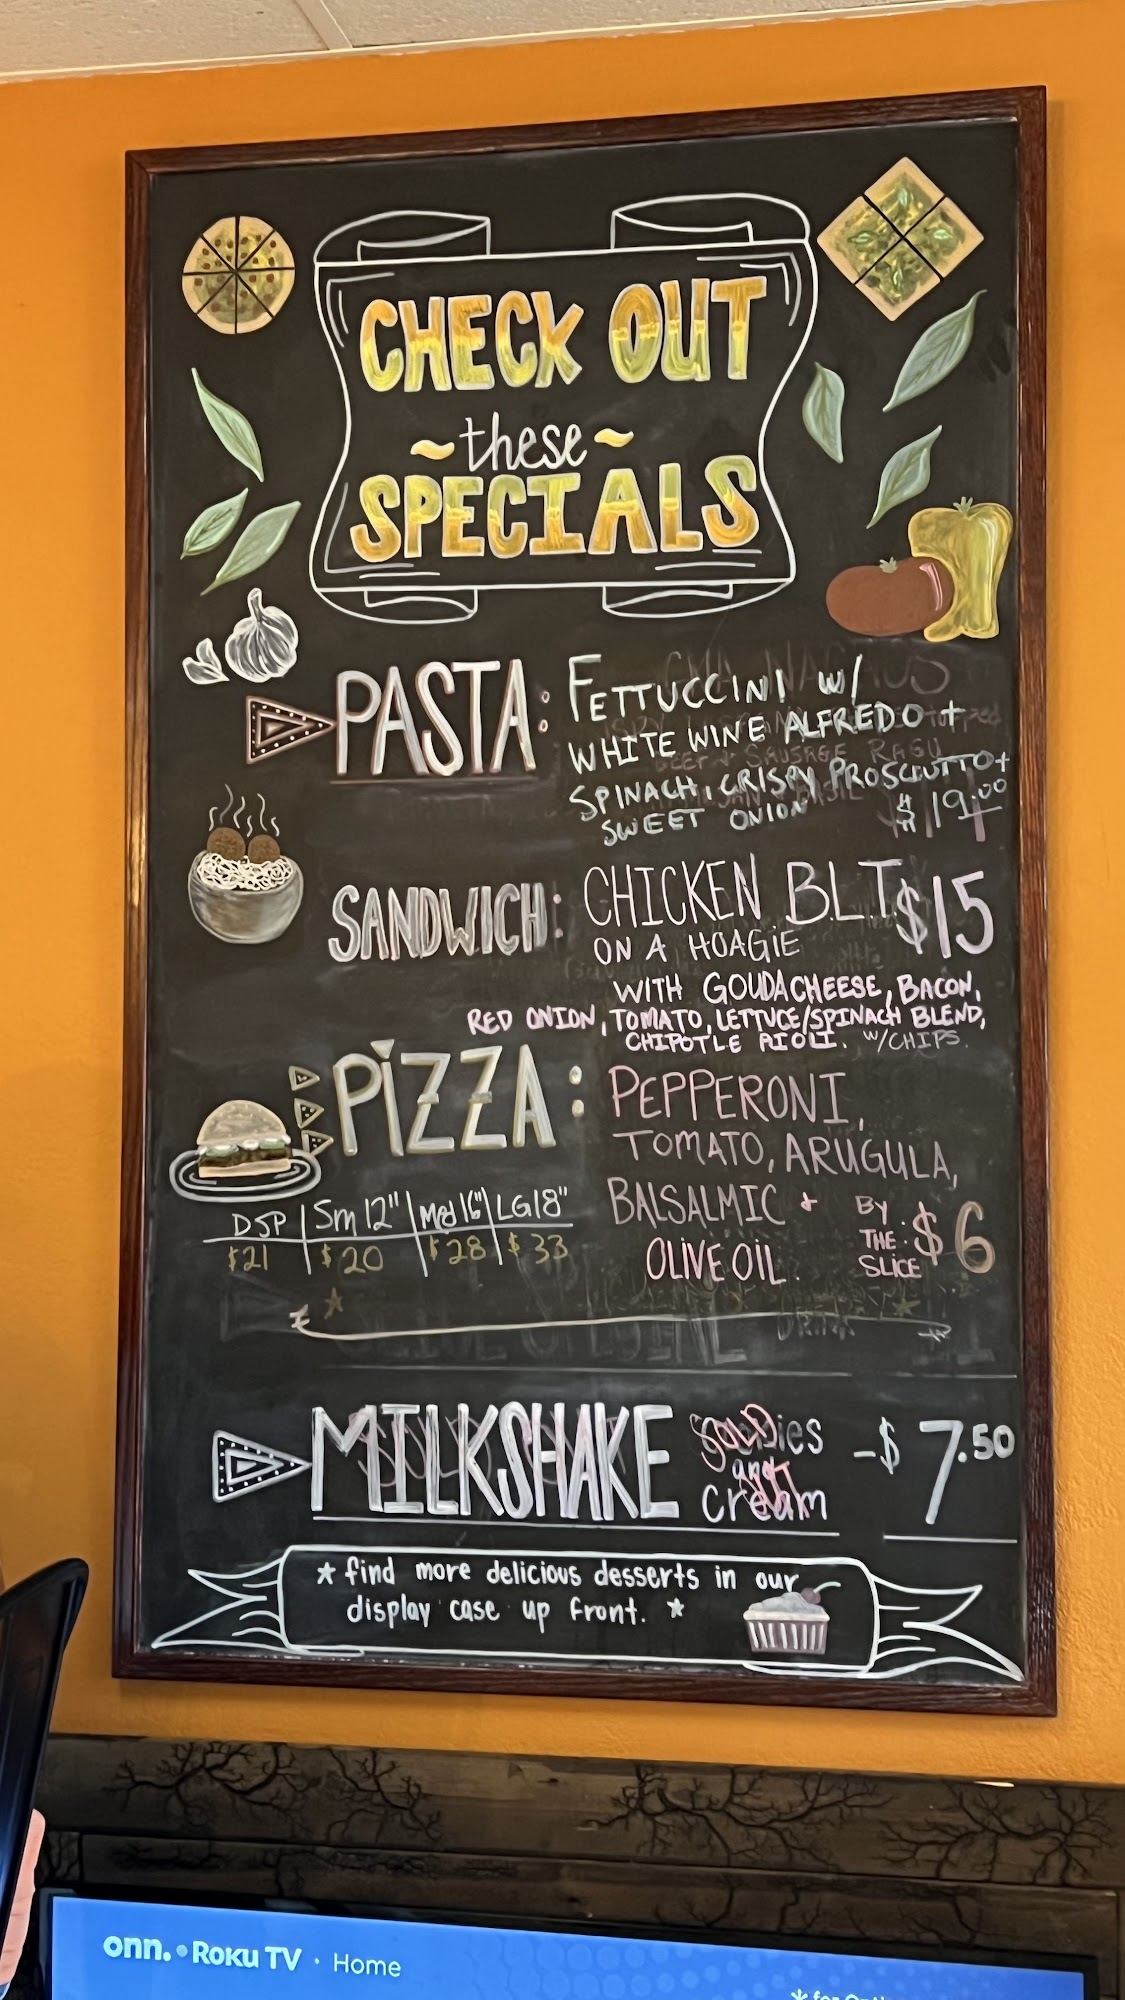 CHECK OUT
~these~
SPECIALS
PASTA: FETTUCCINI W/
WHITE WINE ALFREDO +
SPINACH, CRISPY PROSCIUTTO +
SWEET ONION $19.00
SANDWICH: CHICKEN B.L.T. $15
ON A HOAGIE
WITH GOUDA CHEESE, BACON,
RED ONION, TOMATO, LETTUCE/SPINACH BLEND,
CHIPOTLE AIOLI. W/CHIPS.
PIZZA: PEPPERONI,
TOMATO, ARUGULA,
BALSALMIC +
OLIVE OIL.
BY
THE
SLICE $6
DSP | Sm 12" | Med 16" | LG 18"
$21 | $20 | $28 | $33
MILKSHAKE Cookies
and
Cream - $7.50
SOLD
OUT
* find more delicious desserts in our
display case up front. *
onn. • Roku TV • Home